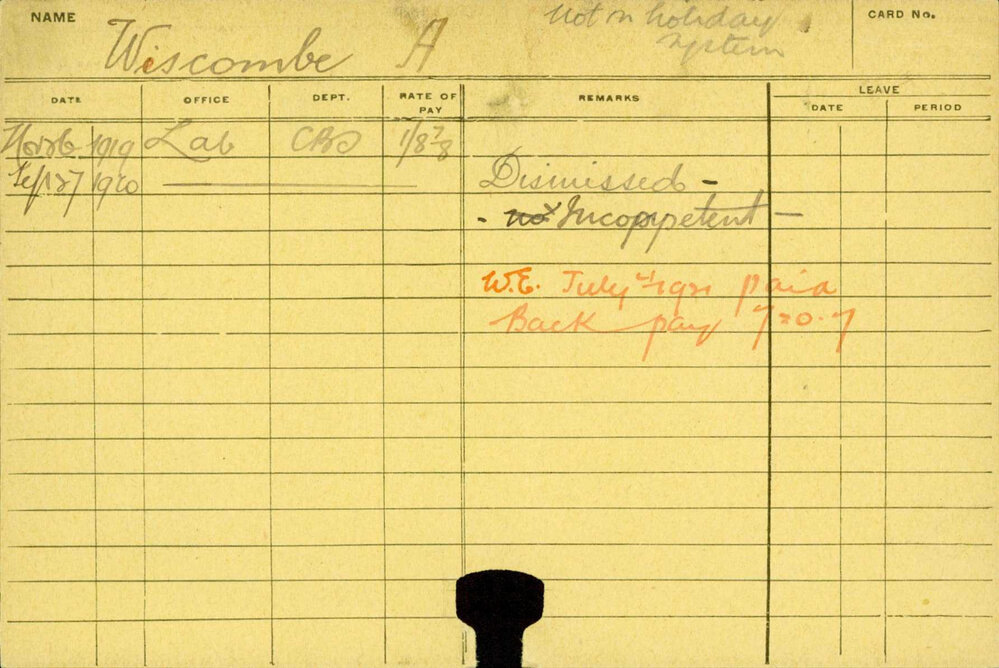 NAME
Wiscombe A
Not on holiday
system
CARD No.
DATE OFFICE DEPT. RATE OF PAY REMARKS LEAVE
DATE PERIOD
1919 Lab 1/8 7/8
Sept 27 1920 Dismissed -
- not Incoppetent -
W.E. July 1921 paid
Back pay 7-20-7